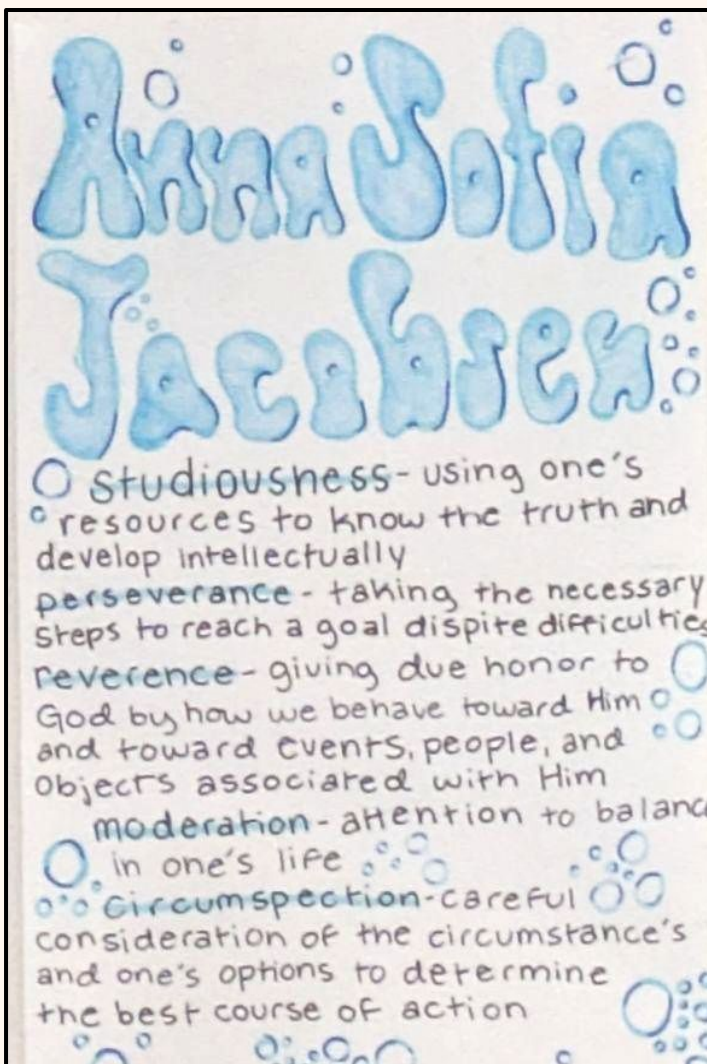 Anna Sofia
Jacobsen
studiousness - using one's
resources to know the truth and
develop intellectually
perseverance - taking the necessary
steps to reach a goal dispite difficulties
reverence - giving due honor to
God by how we behave toward Him
and toward events, people, and
objects associated with Him
moderation - attention to balanc
in one's life
circumspection - careful
consideration of the circumstance's
and one's options to determine
the best course of action